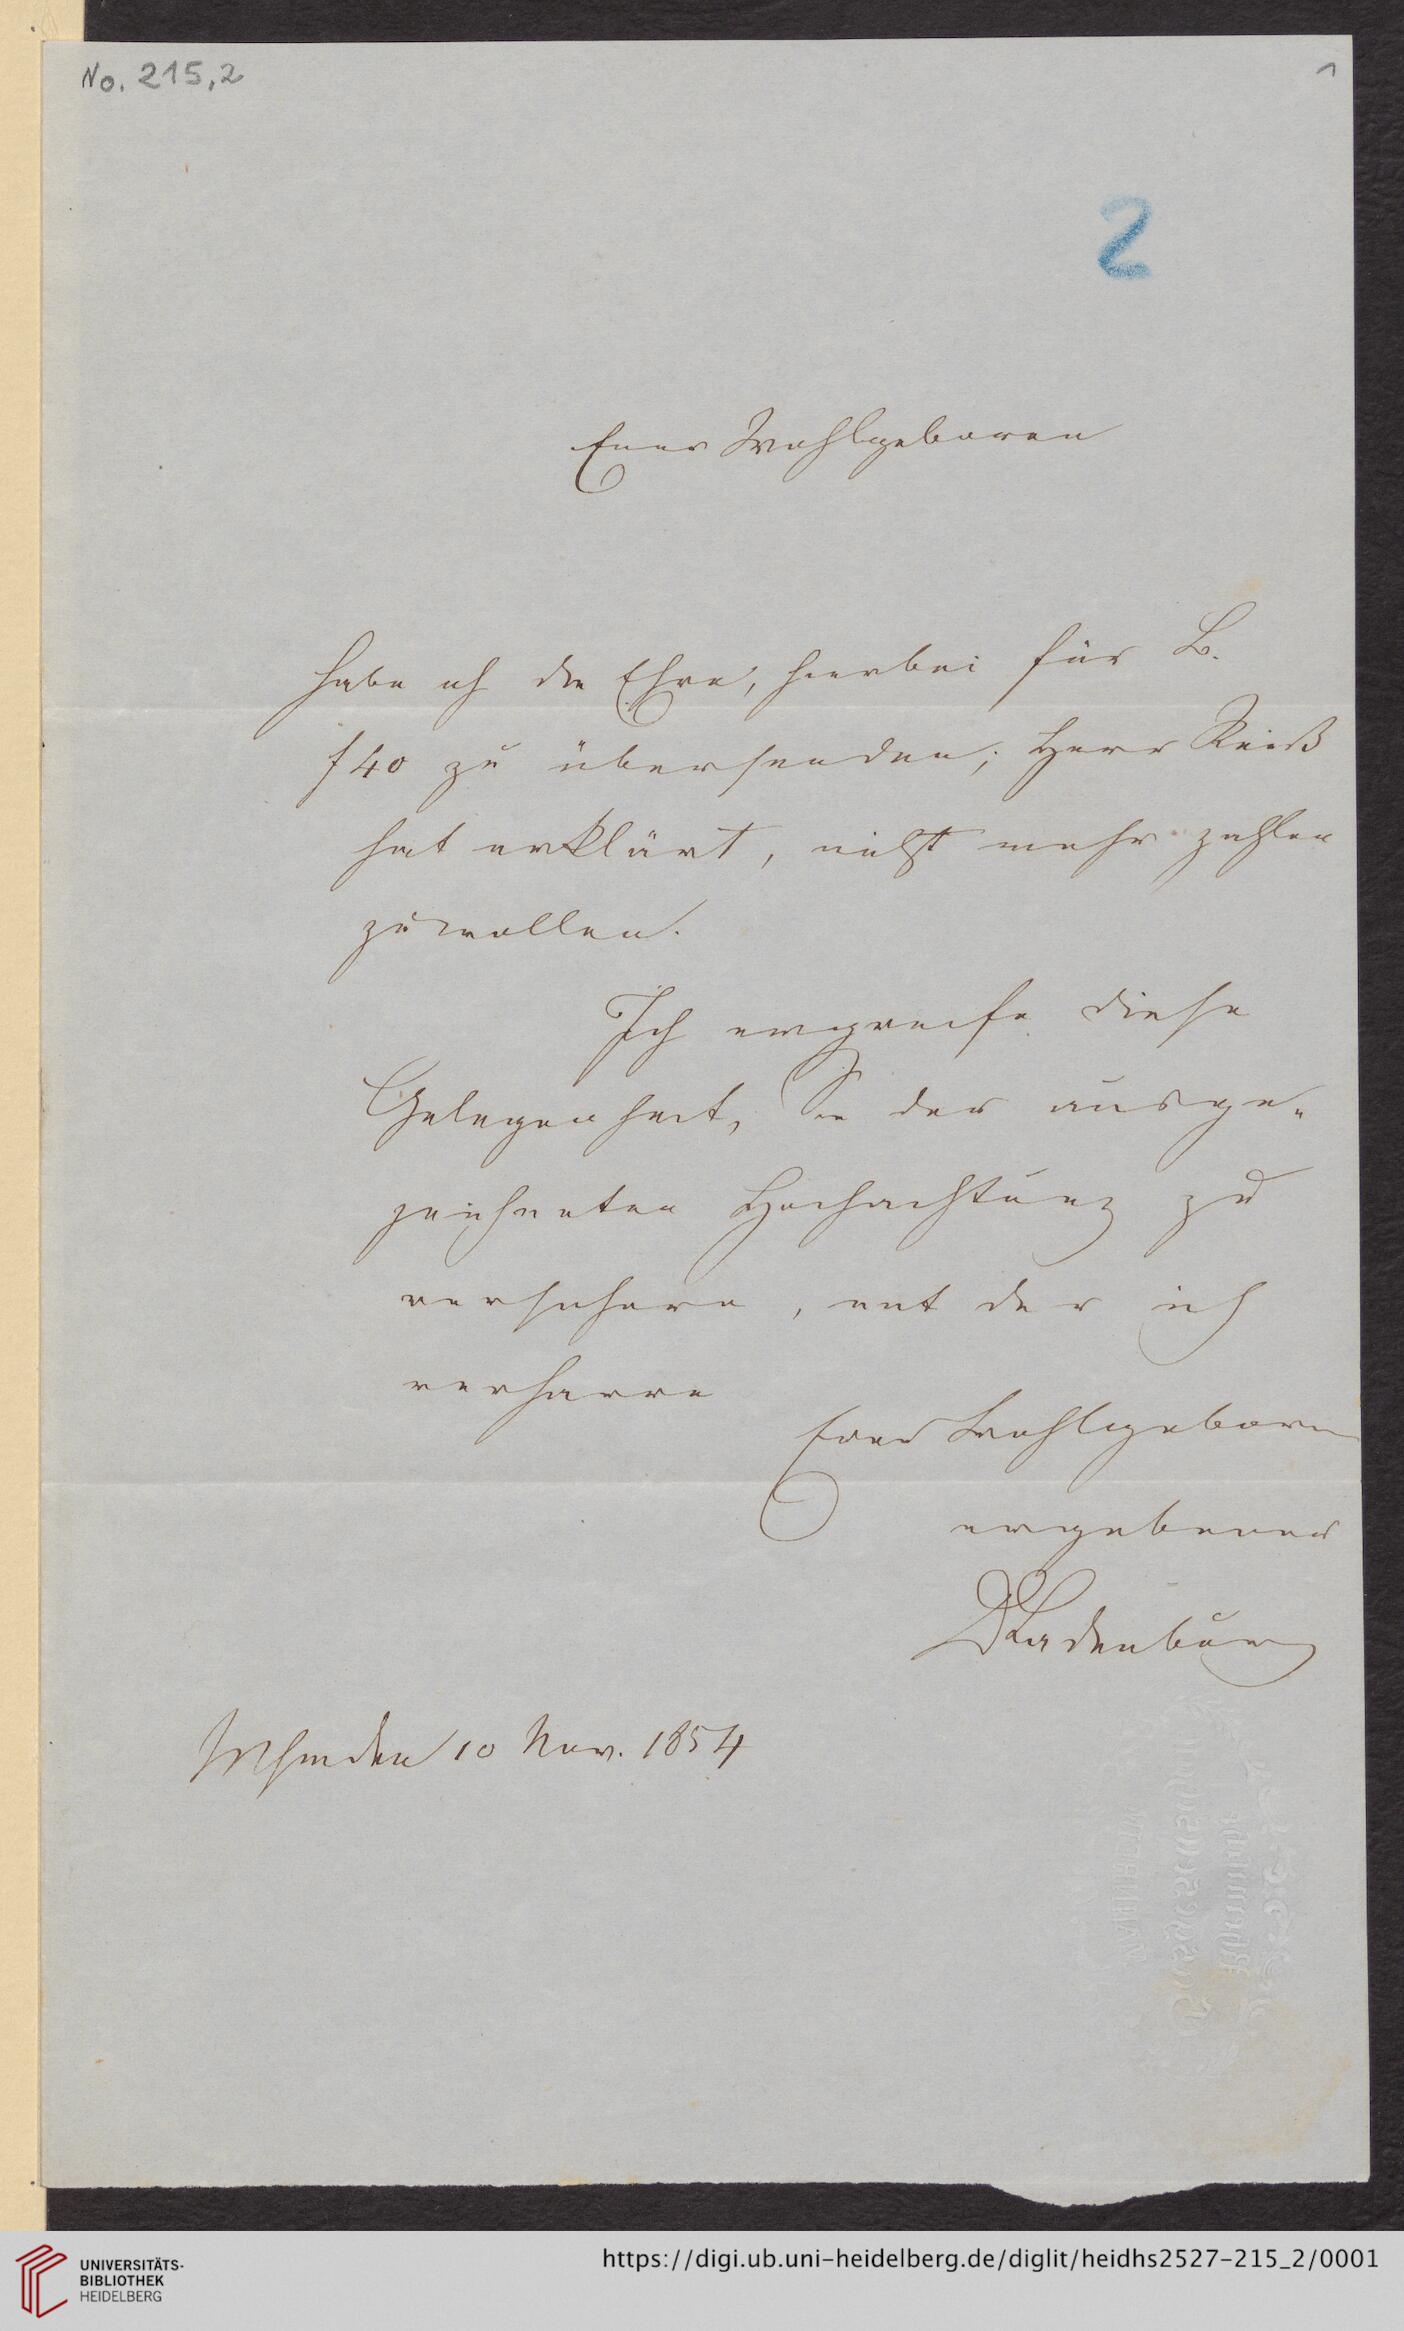 No. 215,2
1
2
Euer Wohlgeboren
habe ich die Ehre, hierbei für B.
f 40 zu übersenden; Herr Reiß
hat erklärt, nicht mehr zahlen
zu wollen.
Ich ergreife diese
Gelegenheit, Sie der ausge-
zeichneten Hochachtung zu
versichern, mit der ich
verharre
Euer Wohlgeboren
ergebener
Ladenburg
10 Nov. 1854
MANNHEIM
UNIVERSITÄTS-
BIBLIOTHEK
HEIDELBERG
https://digi.ub.uni-heidelberg.de/diglit/heidhs2527-215_2/0001